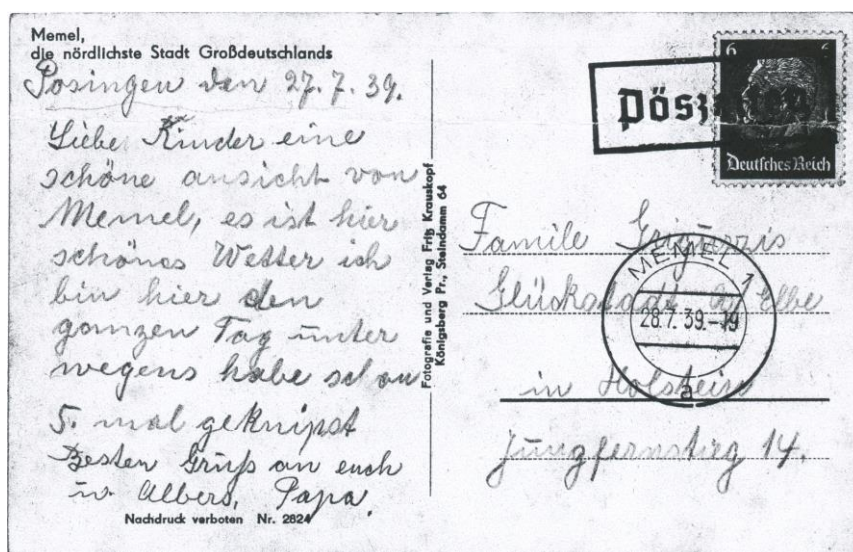 Memel,
die nördlichste Stadt Großdeutschlands
Posingen den 27.7.39.
Liebe Kinder eine
schöne ansicht von
Memel, es ist hier
schönes Wetter ich
bin hier den
ganzen Tag unter
wegens habe schon
5. mal geknipst
Besten Gruß an euch
u. Albers, Papa.
Nachdruck verboten Nr. 2824
Fotografie und Verlag Fritz Krauskopf
Königsberg Pr., Steindamm 64
6 6
Deutsches Reich
MEMEL 1
28.7.39.-19
a
Familie
Glückstadt a/ Elbe
in Holstein
Jungfernstieg 14.